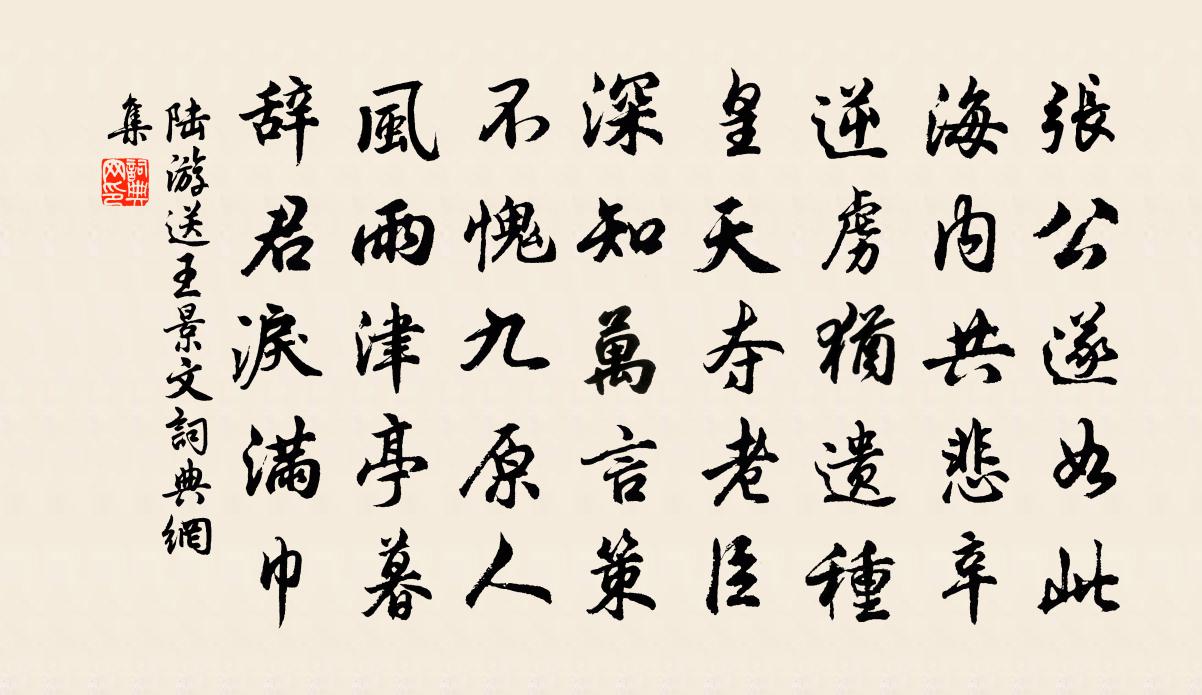 張公遂如此
海內共悲辛
逆虜猶遺種
皇天夺老臣
深知萬言策
不愧九原人
風雨津亭暮
辞君淚滿巾
陆游送王景文詞典網
集
詞典網印